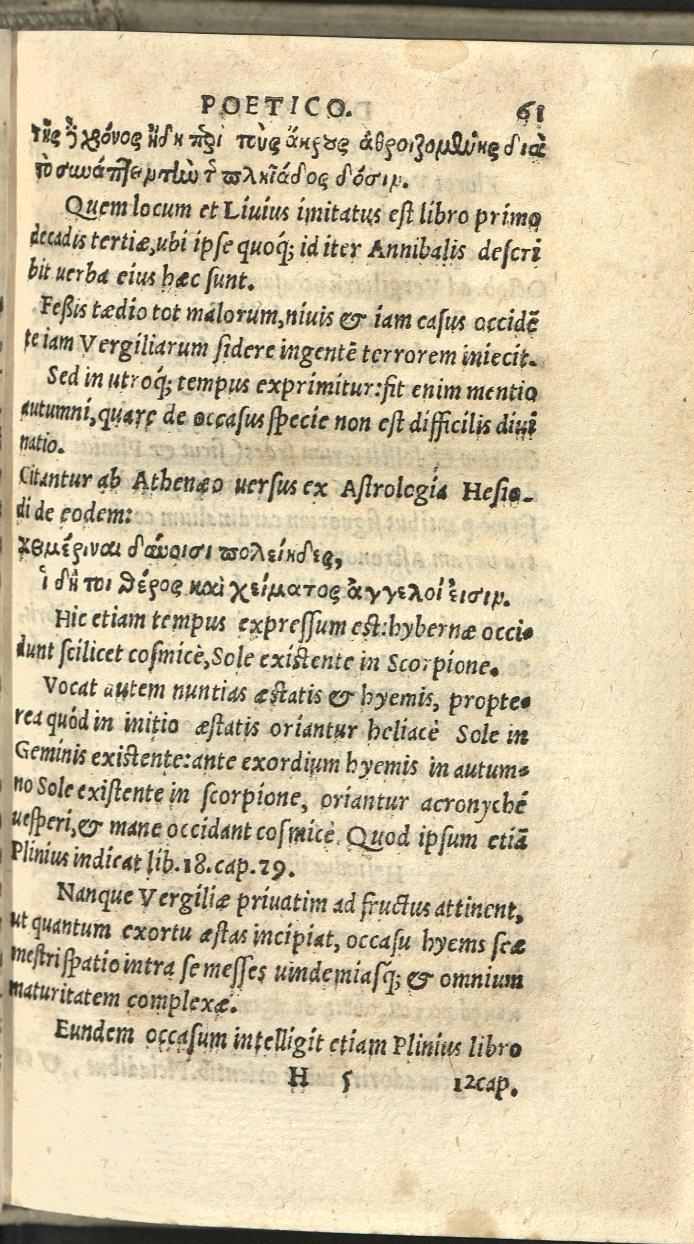 POETICO. 61
τῆς ἢ χρόνος ἤδη περὶ τοὺς ἄκρους ἀθροιζομένης διὰ
τὸ συνάπτειν τὴν τ πλειάδος δόσιν.
Quem locum et Liuius imitatus est libro primo
decadis tertiæ, ubi ipse quoq; id iter Annibalis descri
bit uerba eius hæc sunt.
Feßis tædio tot malorum, niuis & iam casus occidē
te iam Vergiliarum sidere ingentē terrorem iniecit.
Sed in utroq; tempus exprimitur: fit enim mentio
autumni, quare de occasus specie non est difficilis diui
natio.
Citantur ab Athenæo uersus ex Astrologia Hesio-
di de eodem:
χειμέριναι δύνουσι πολείηδες,
ἱ δή τοι θέρος καὶ χείματος ἄγγελοί εἰσιν.
Hic etiam tempus expressum est: hybernæ occi-
dunt scilicet cosmicè, Sole existente in Scorpione.
Vocat autem nuntias æstatis & hyemis, propte-
rea quòd in initio æstatis oriantur heliacè Sole in
Geminis existente: ante exordium hyemis in autum-
no Sole existente in scorpione, oriantur acronychè
uesperi, & mane occidant cosmicè. Quod ipsum etiā
Plinius indicat lib. 18. cap. 29.
Nanque Vergiliæ priuatim ad fructus attinent,
ut quantum exortu æstas incipiat, occasu hyems seæ
mestri spatio intra se messes uindemiasq; & omnium
maturitatem complexæ.
Eundem occasum intelligit etiam Plinius libro
H 5 12 cap.